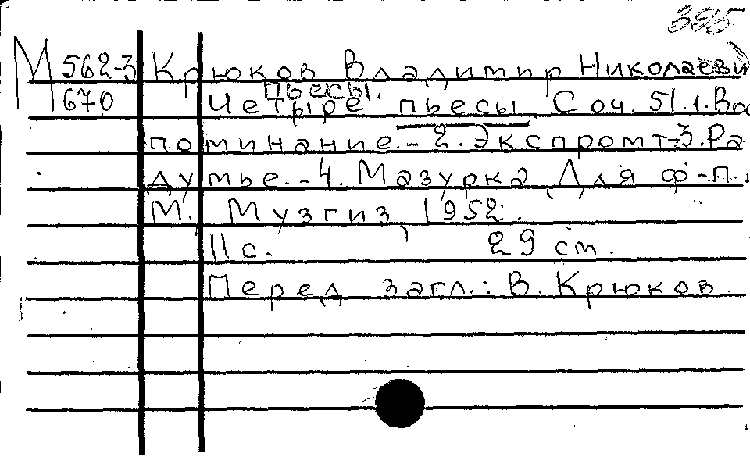 385
М 562-3 Крюков Владимир Николаеви
пьесы.
670 Четыре пьесы. Соч. 51. 1. Во
поминание. - 2. Экспромт - 3. Ра
думье. - 4. Мазурка. Для ф-п.
М. Музгиз, 1952.
11 с. 29 cm.
Перед загл.: В. Крюков